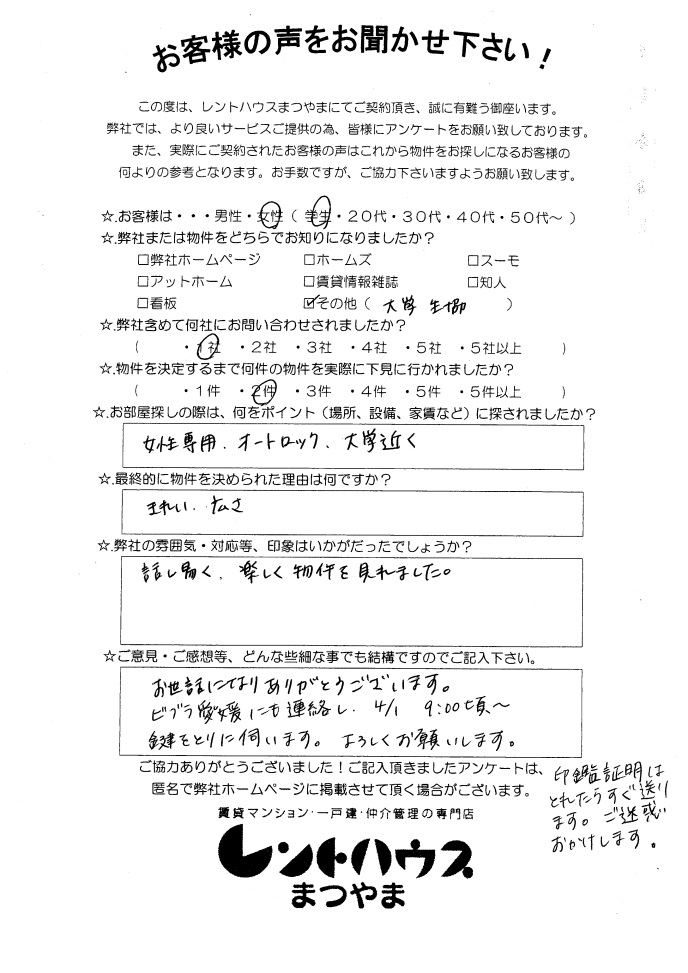 お客様の声をお聞かせ下さい！
この度は、レントハウスまつやまにてご契約頂き、誠に有難う御座います。
弊社では、より良いサービスご提供の為、皆様にアンケートをお願い致しております。
また、実際にご契約されたお客様の声はこれから物件をお探しになるお客様の
何よりの参考となります。お手数ですが、ご協力下さいますようお願い致します。
☆.お客様は・・・男性・女性（ 学生・２０代・３０代・４０代・５０代～ ）
☆.弊社または物件をどちらでお知りになりましたか？
□弊社ホームページ □ホームズ □スーモ
□アットホーム □賃貸情報雑誌 □知人
□看板 ☑その他（ 大学 生協 ）
☆.弊社含めて何社にお問い合わせされましたか？
（ ・１社 ・２社 ・３社 ・４社 ・５社 ・５社以上 ）
☆.物件を決定するまで何件の物件を実際に下見に行かれましたか？
（ ・１件 ・２件 ・３件 ・４件 ・５件 ・５件以上 ）
☆.お部屋探しの際は、何をポイント（場所、設備、家賃など）に探されましたか？
女性専用、オートロック、大学近く
☆.最終的に物件を決められた理由は何ですか？
きれい、広さ
☆.弊社の雰囲気・対応等、印象はいかがだったでしょうか？
話し易く、楽しく物件を見れました。
☆ご意見・ご感想等、どんな些細な事でも結構ですのでご記入下さい。
お世話になりありがとうございます。
ビブラ愛媛にも連絡し、4/1 9:00頃～
鍵をとりに伺います。よろしくお願いします。
ご協力ありがとうございました！ご記入頂きましたアンケートは、
匿名で弊社ホームページに掲載させて頂く場合がございます。
印鑑証明は
とれたらすぐ送り
ます。ご迷惑
おかけします。
賃貸マンション・一戸建・仲介管理の専門店
レントハウス
まつやま